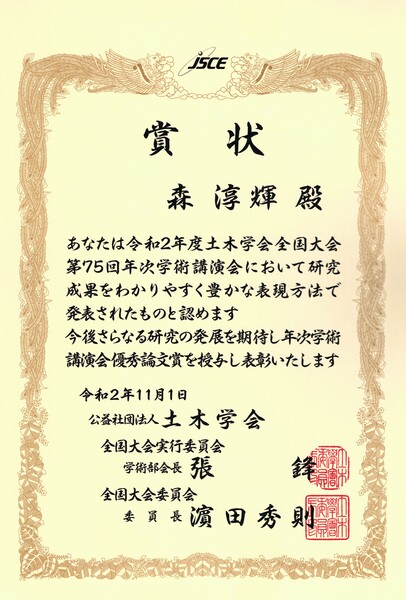 JSCE
賞状
森 淳輝 殿
あなたは令和2年度土木学会全国大会
第75回年次学術講演会において研究
成果をわかりやすく豊かな表現方法で
発表されたものと認めます
今後さらなる研究の発展を期待し年次学術
講演会優秀論文賞を授与し表彰いたします
令和2年11月1日
公益社団法人 土木学会
全国大会実行委員会
学術部会長 張 鋒
全国大会委員会
委員長 濵田秀則